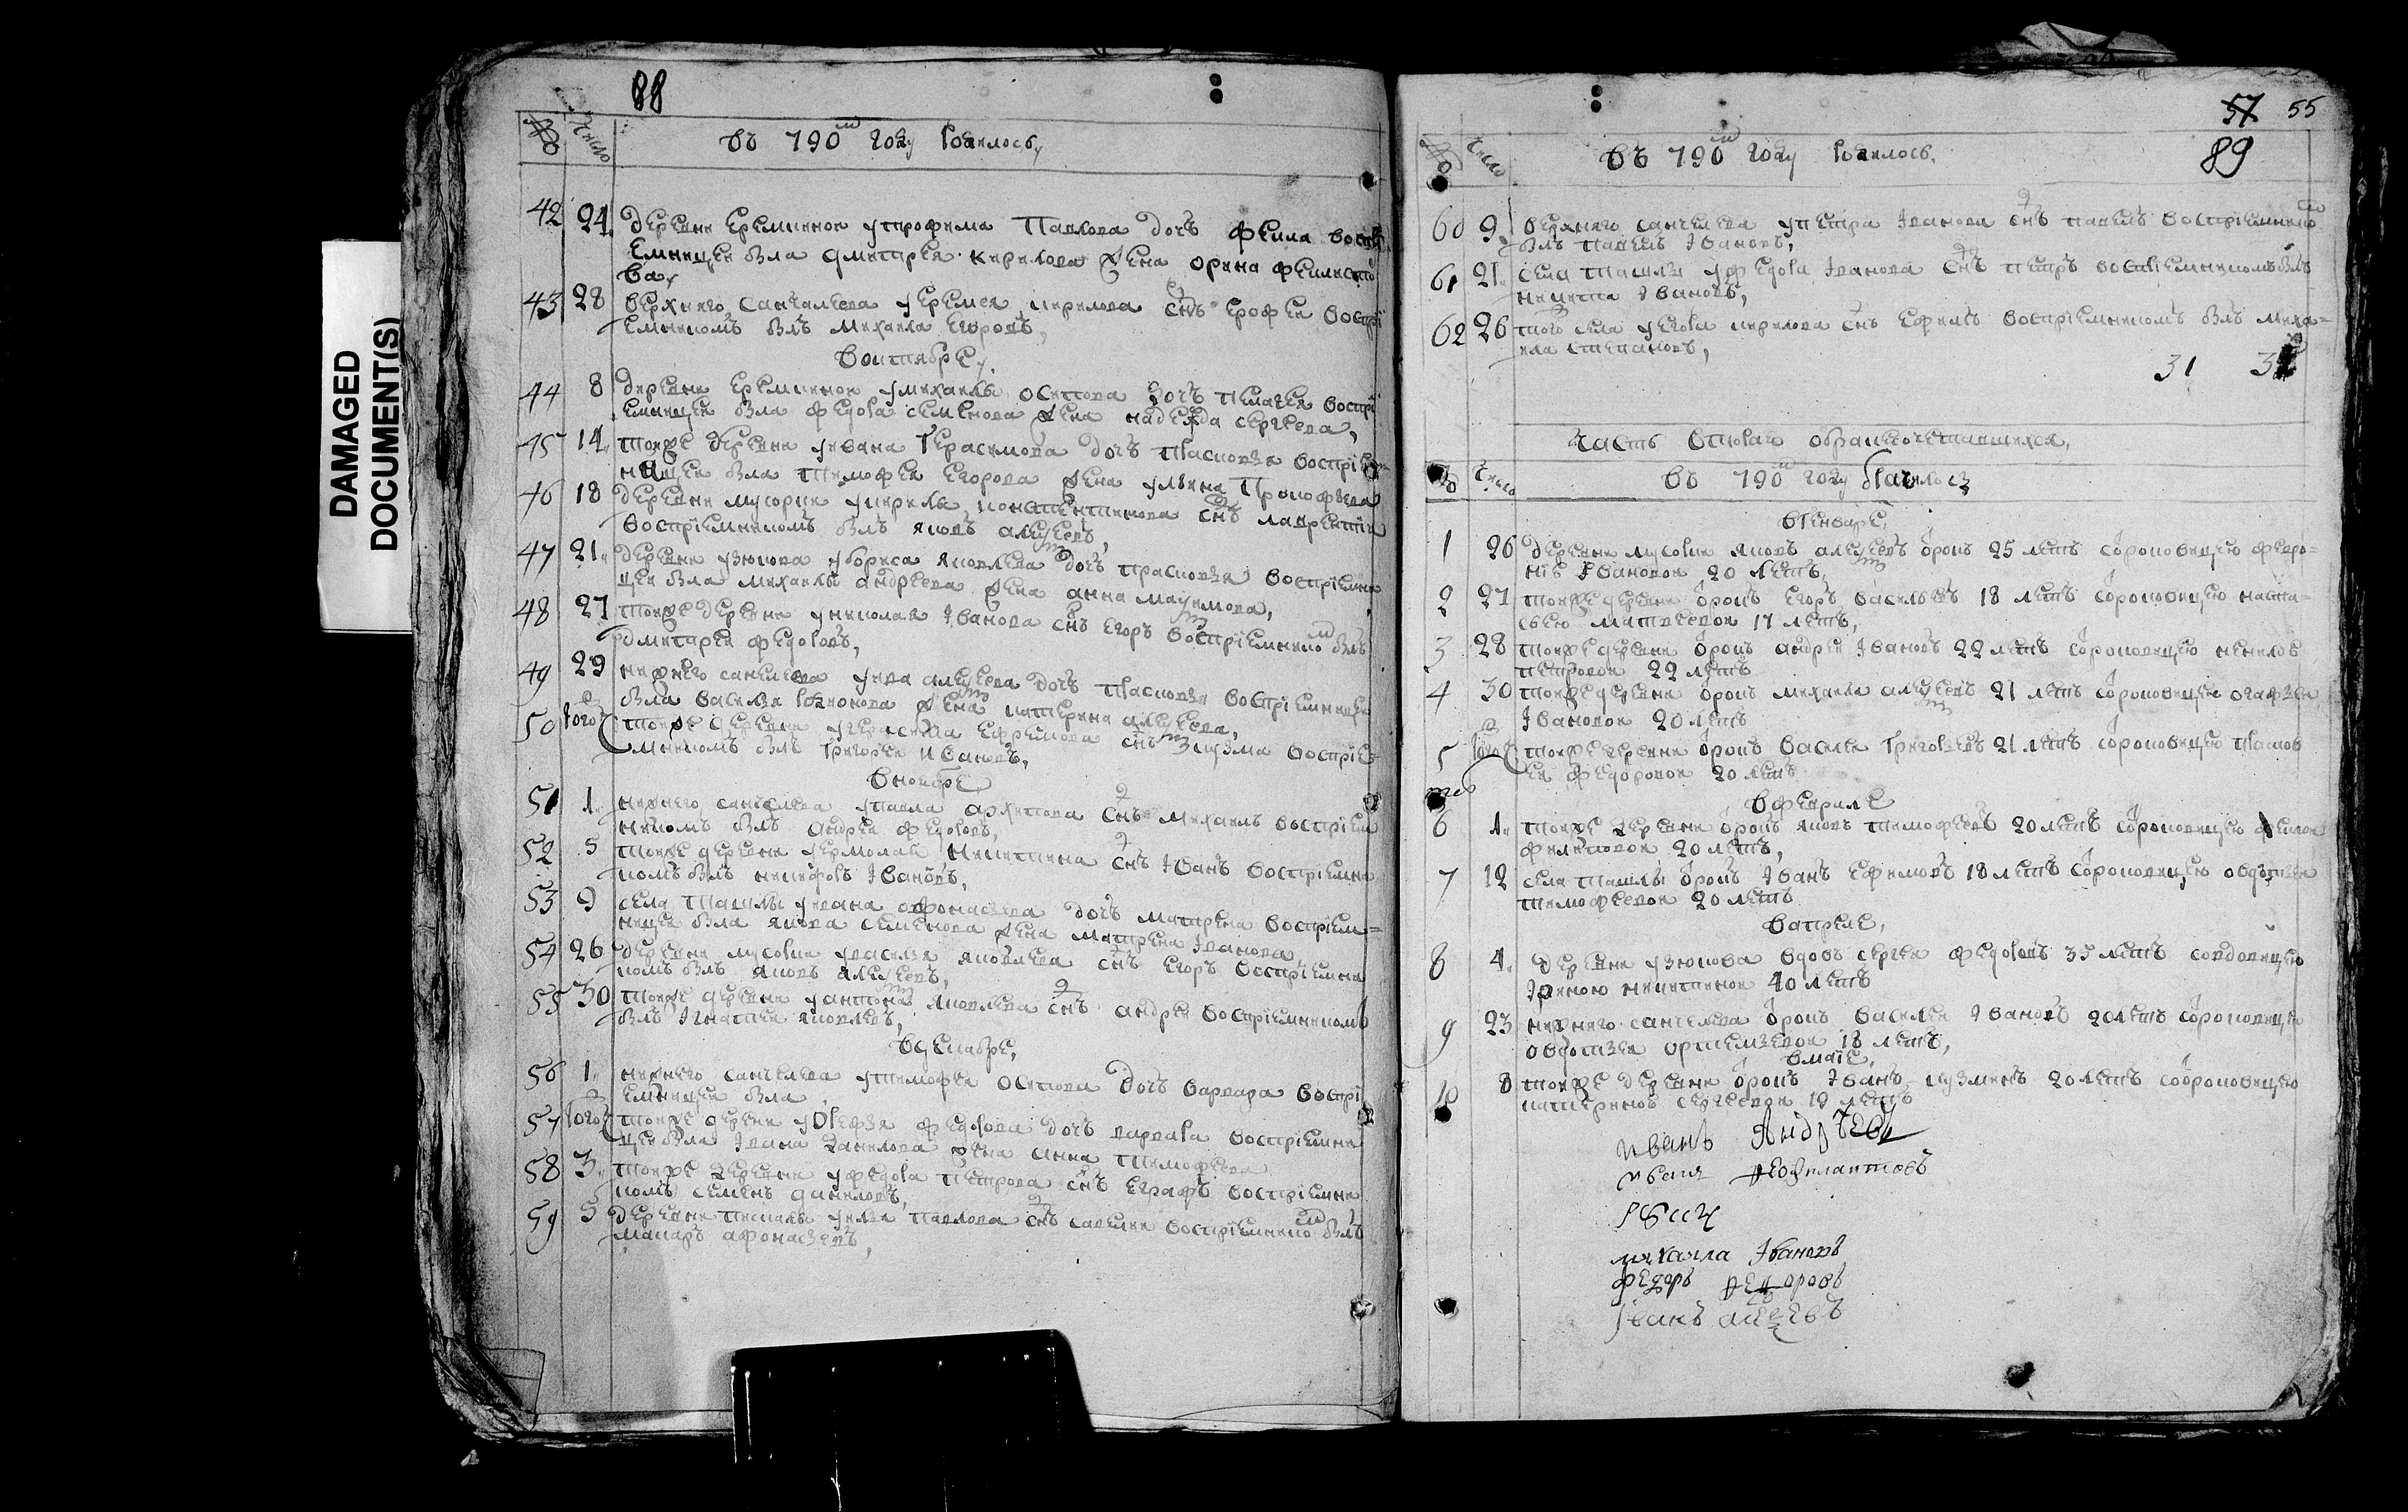 DAMAGED
DOCUMENT(S)
88
№ число въ 790м году родилось,
42 24 деревни Еремкиной у трофима Павлова дочь фекла воспрі
емницей была дмитрея кирилова жена орина филипо
ва,
43 28 верхнего санчелеева у еремея кирилова снъ ерофеи воспрі
емникомъ былъ михаила Егоровъ,
воктябре,
44 8 деревни еремкиной у михаилы осипова дочь пелагея воспрі
емницей была федора семенова жена надежда сергеева,
45 14 тоеже деревни уивана Герасимова дочь прасковья воспріем
ницей была тимофея егорова жена ульяна Прокофьева
46 18 деревни мусорки укирилы константинова снъ лаврентіи
воспріемникомъ былъ яковъ алексеевъ,
47 21 деревни узюкова убориса яковлева дочь прасковья воспріемни
цей была михаилы андреева жена анна максимова,
48 27 тоеже деревни униколая Іванова снъ егоръ воспріемником былъ
дмитреи федоровъ,
49 29 нижнего санчелеева алексеева дочь прасковья воспріемницей
была василья родионова жена катерина алексеева,
50 того тоеже деревни угерасима ефремова снъ кузма воспріе
мникомъ былъ григореи ивановъ,
вноябре
51 1 нижнего санчелеева упавла архипова снъ михаилъ воспріем
никомъ былъ андреи федоровъ,
52 5 тоеже деревни уермолаи никитина снъ Іванъ воспріемни
комъ былъ никифоръ Івановъ,
53 9 села ташлы уивана офонасьева дочь матрена воспріем=
ницей была якова семенова жена матрена Іванова,
54 26 деревни мусорки увасилья яковлева снъ егоръ воспріемни
комъ былъ яковъ алексеевъ,
55 30 тоеже деревни уантона яковлева снъ андреи воспріемникомъ
былъ Ігнатеи яковлевъ,
вдекабре,
56 1 нижнего санчелеева утимофея осипова дочь варвара воспрі
емницей была
57 того тоеже деревни у федорова дочь варвара воспріемни
цей была Івана данилова жена анна тимофеева
58 3 тоеже деревни уфедора петрова снъ еграфъ воспріемни
комъ семенъ даниловъ,
59 5 деревни пискалы уильи павлова снъ савелеи воспріемником былъ
макаръ афонасьевъ,
57 55
89
№ число въ 790м году родилось,
60 9 верхнего санчелеева упетра Іванова снъ павелъ воспріемником
былъ павелъ Івановъ,
61 21 села ташлы уфедора Іванова снъ петръ воспріемникомъ былъ
никита Івановъ,
62 26 того села уегора кирилова снъ ефимъ воспріемникомъ былъ миха=
ила степановъ,
31 31
часть вторая обракосочетавшихся,
№ число въ 790м году
вгенваре,
1 26 деревни мусорки яковъ алексеевъ отрокъ 25 летъ сотроковицею февро=
ніе Івановой 20 летъ,
2 27 тоеже деревни отрокъ егоръ васильевъ 18 летъ сотроковицею наста=
сьею матвеевой 17 летъ,
3 28 тоеже деревни отрокъ андреи Івановъ 22 летъ сотроковицею ненилой
петровой 22 летъ
4 30 тоеже деревни отрокъ михаила алексеевъ 21 летъ сотроковицею огафьеи
Івановой 20 летъ
5 того тоеже деревни отрокъ василеи григорьевъ 21 летъ сотроковицею прасков
еи федоровой 20 летъ
вфеврале
6 1 тоеже деревни отрокъ яковъ тимофеевъ 20 летъ сотроковицею феклой
филиповой 20 летъ,
7 12 села ташлы отрокъ Іванъ ефимовъ 18 летъ сотроковицею овдотьеи
тимофеевой 20 летъ
вапреле,
8 4 деревни узюкова вдовъ сергеи федоровъ 35 летъ совдовицею
Іриною никитиной 40 летъ
9 23 нижнего санчелеева отрокъ василеи Івановъ 20 летъ сотроковицею
овдотьеи ортемьевой 18 летъ,
вмаіе,
10 8 тоеже деревни отрокъ Іванъ кузминъ 20 летъ сотроковицею
катериной сергеевой 19 летъ
иванъ Андреевъ
иванъ феофилактовъ
михаила Івановъ
федоръ федоровъ
Іванъ алексеевъ